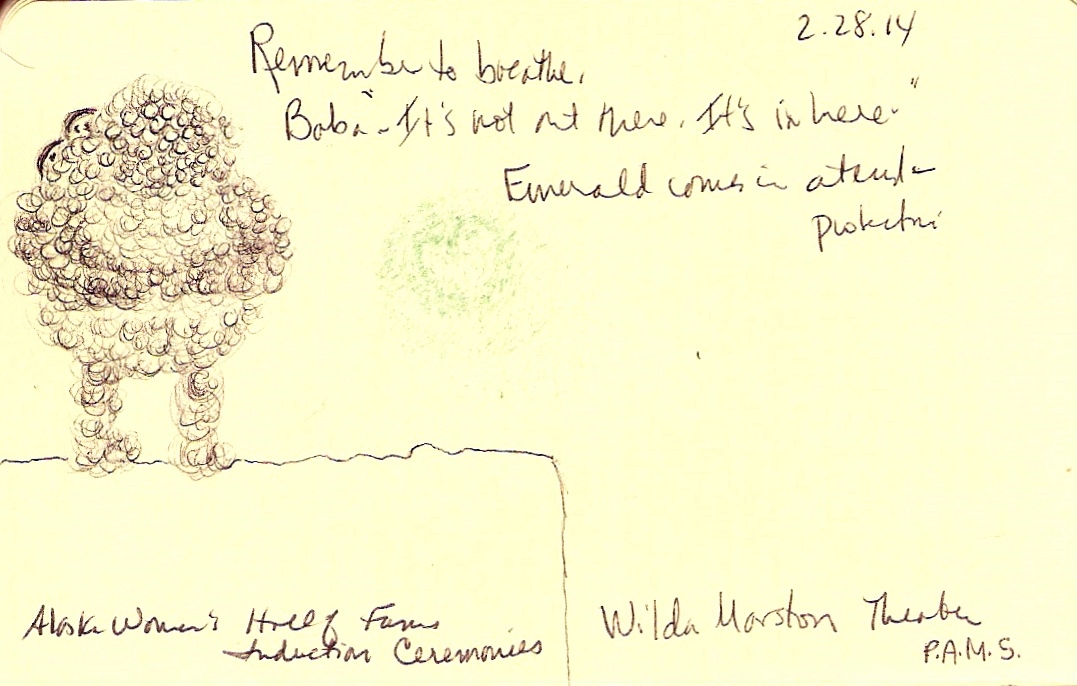 2.28.14
Remember to breathe.
Baba "- It's not out there. It's in here."
Emerald comes in
Alaska Women's Hall of Fame
Induction Ceremonies
Wilda Marston Theater
P.A.M.S.